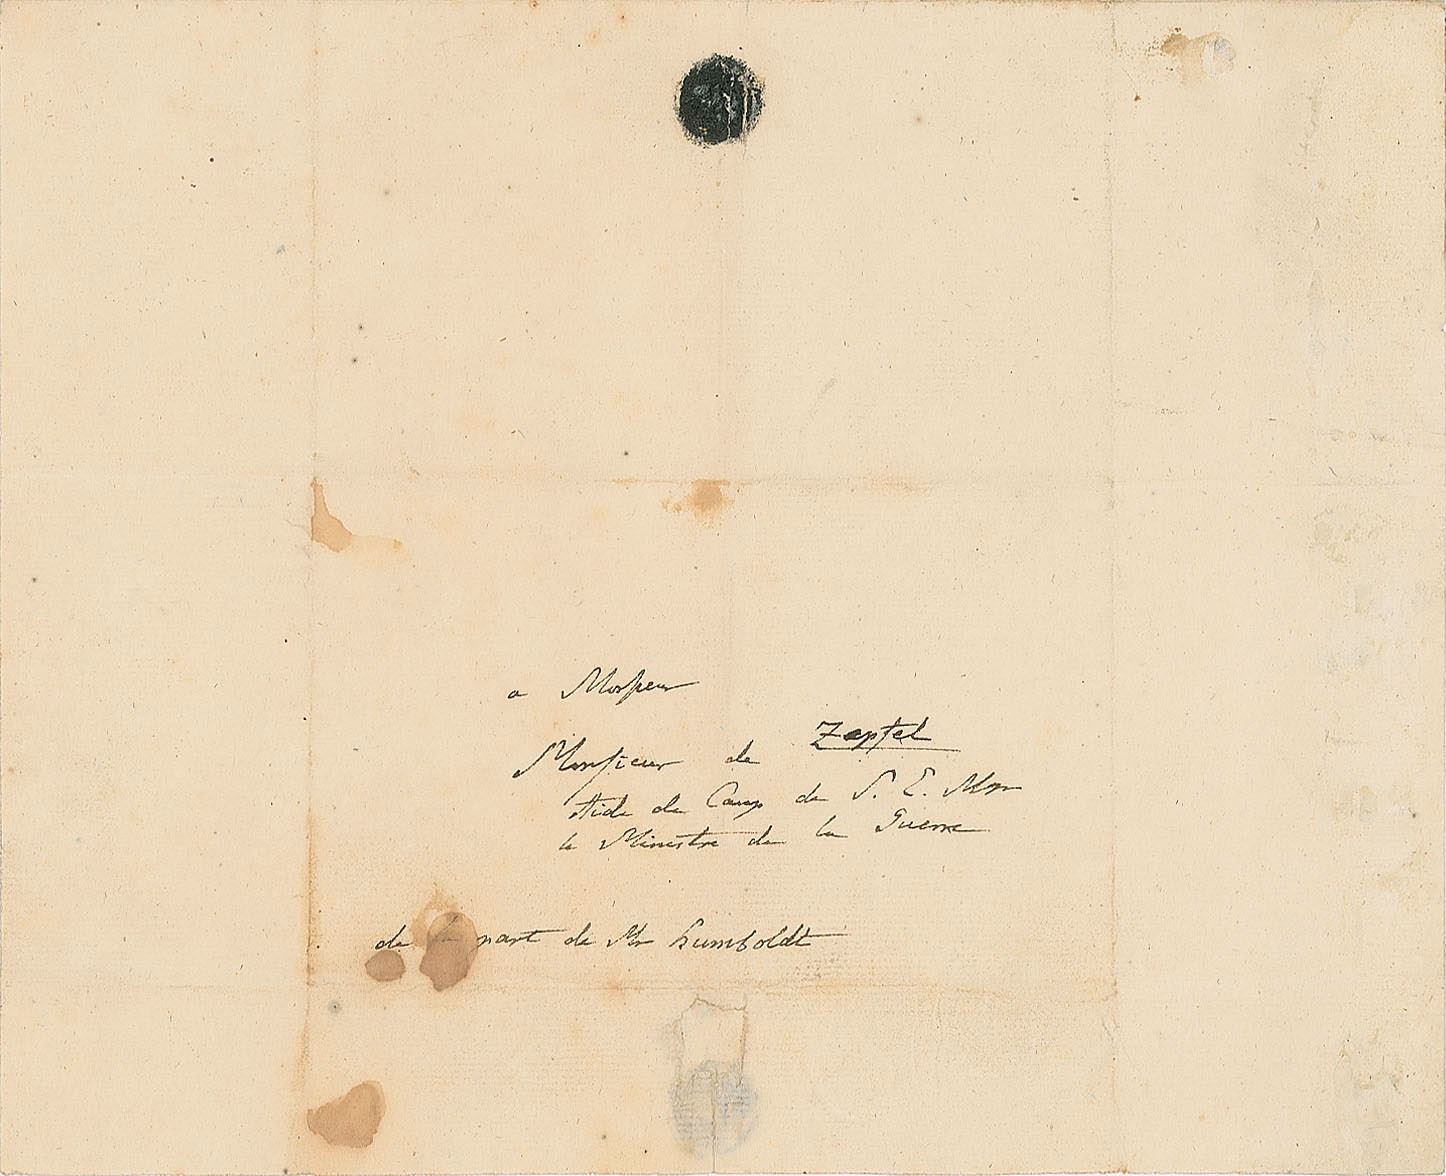 a Monsieur
Monsieur de Zeptel
Aide de Camp de S. E. Mgr
le Ministre de la Guerre
de la part de Mr Humboldt